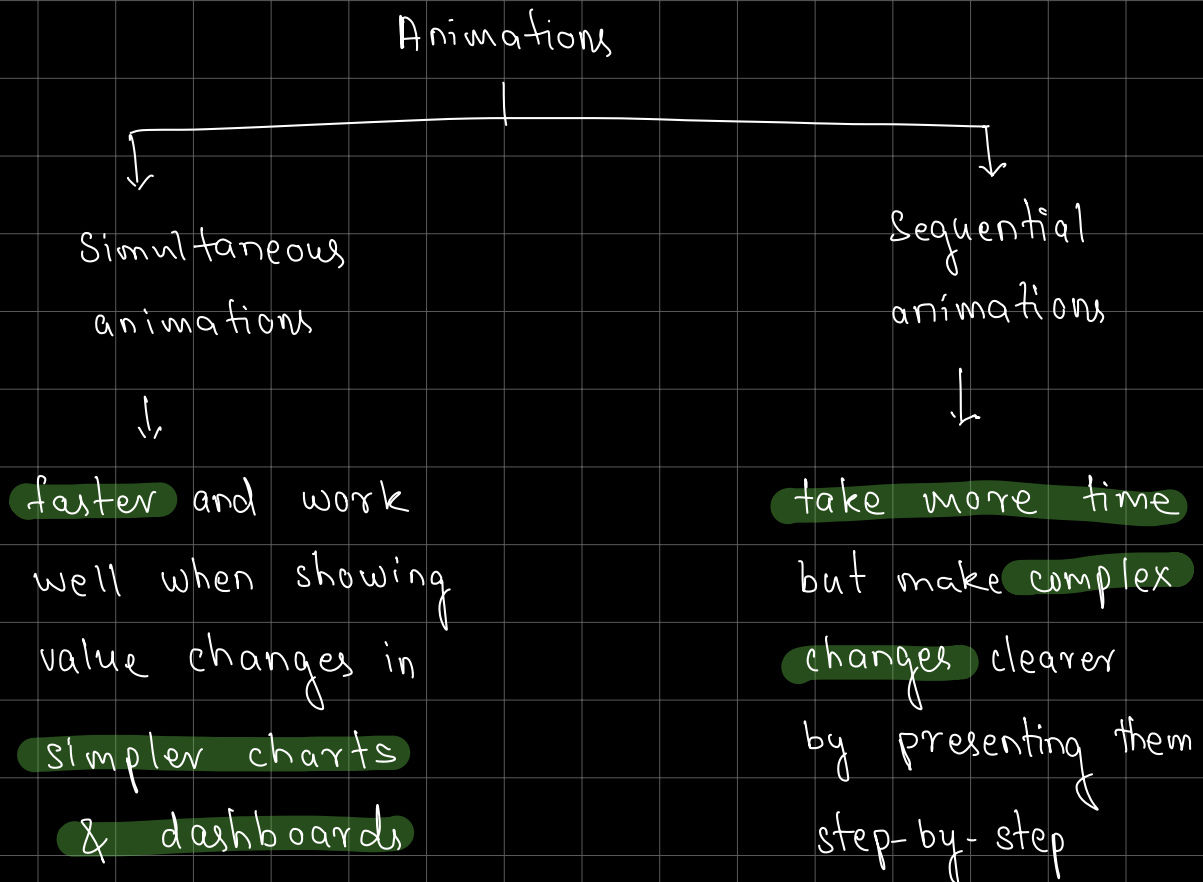 Animations
Simultaneous
animations
faster and work
well when showing
value changes in
simpler charts
& dashboards
Sequential
animations
take more time
but make complex
changes clearer
by presenting them
step-by-step